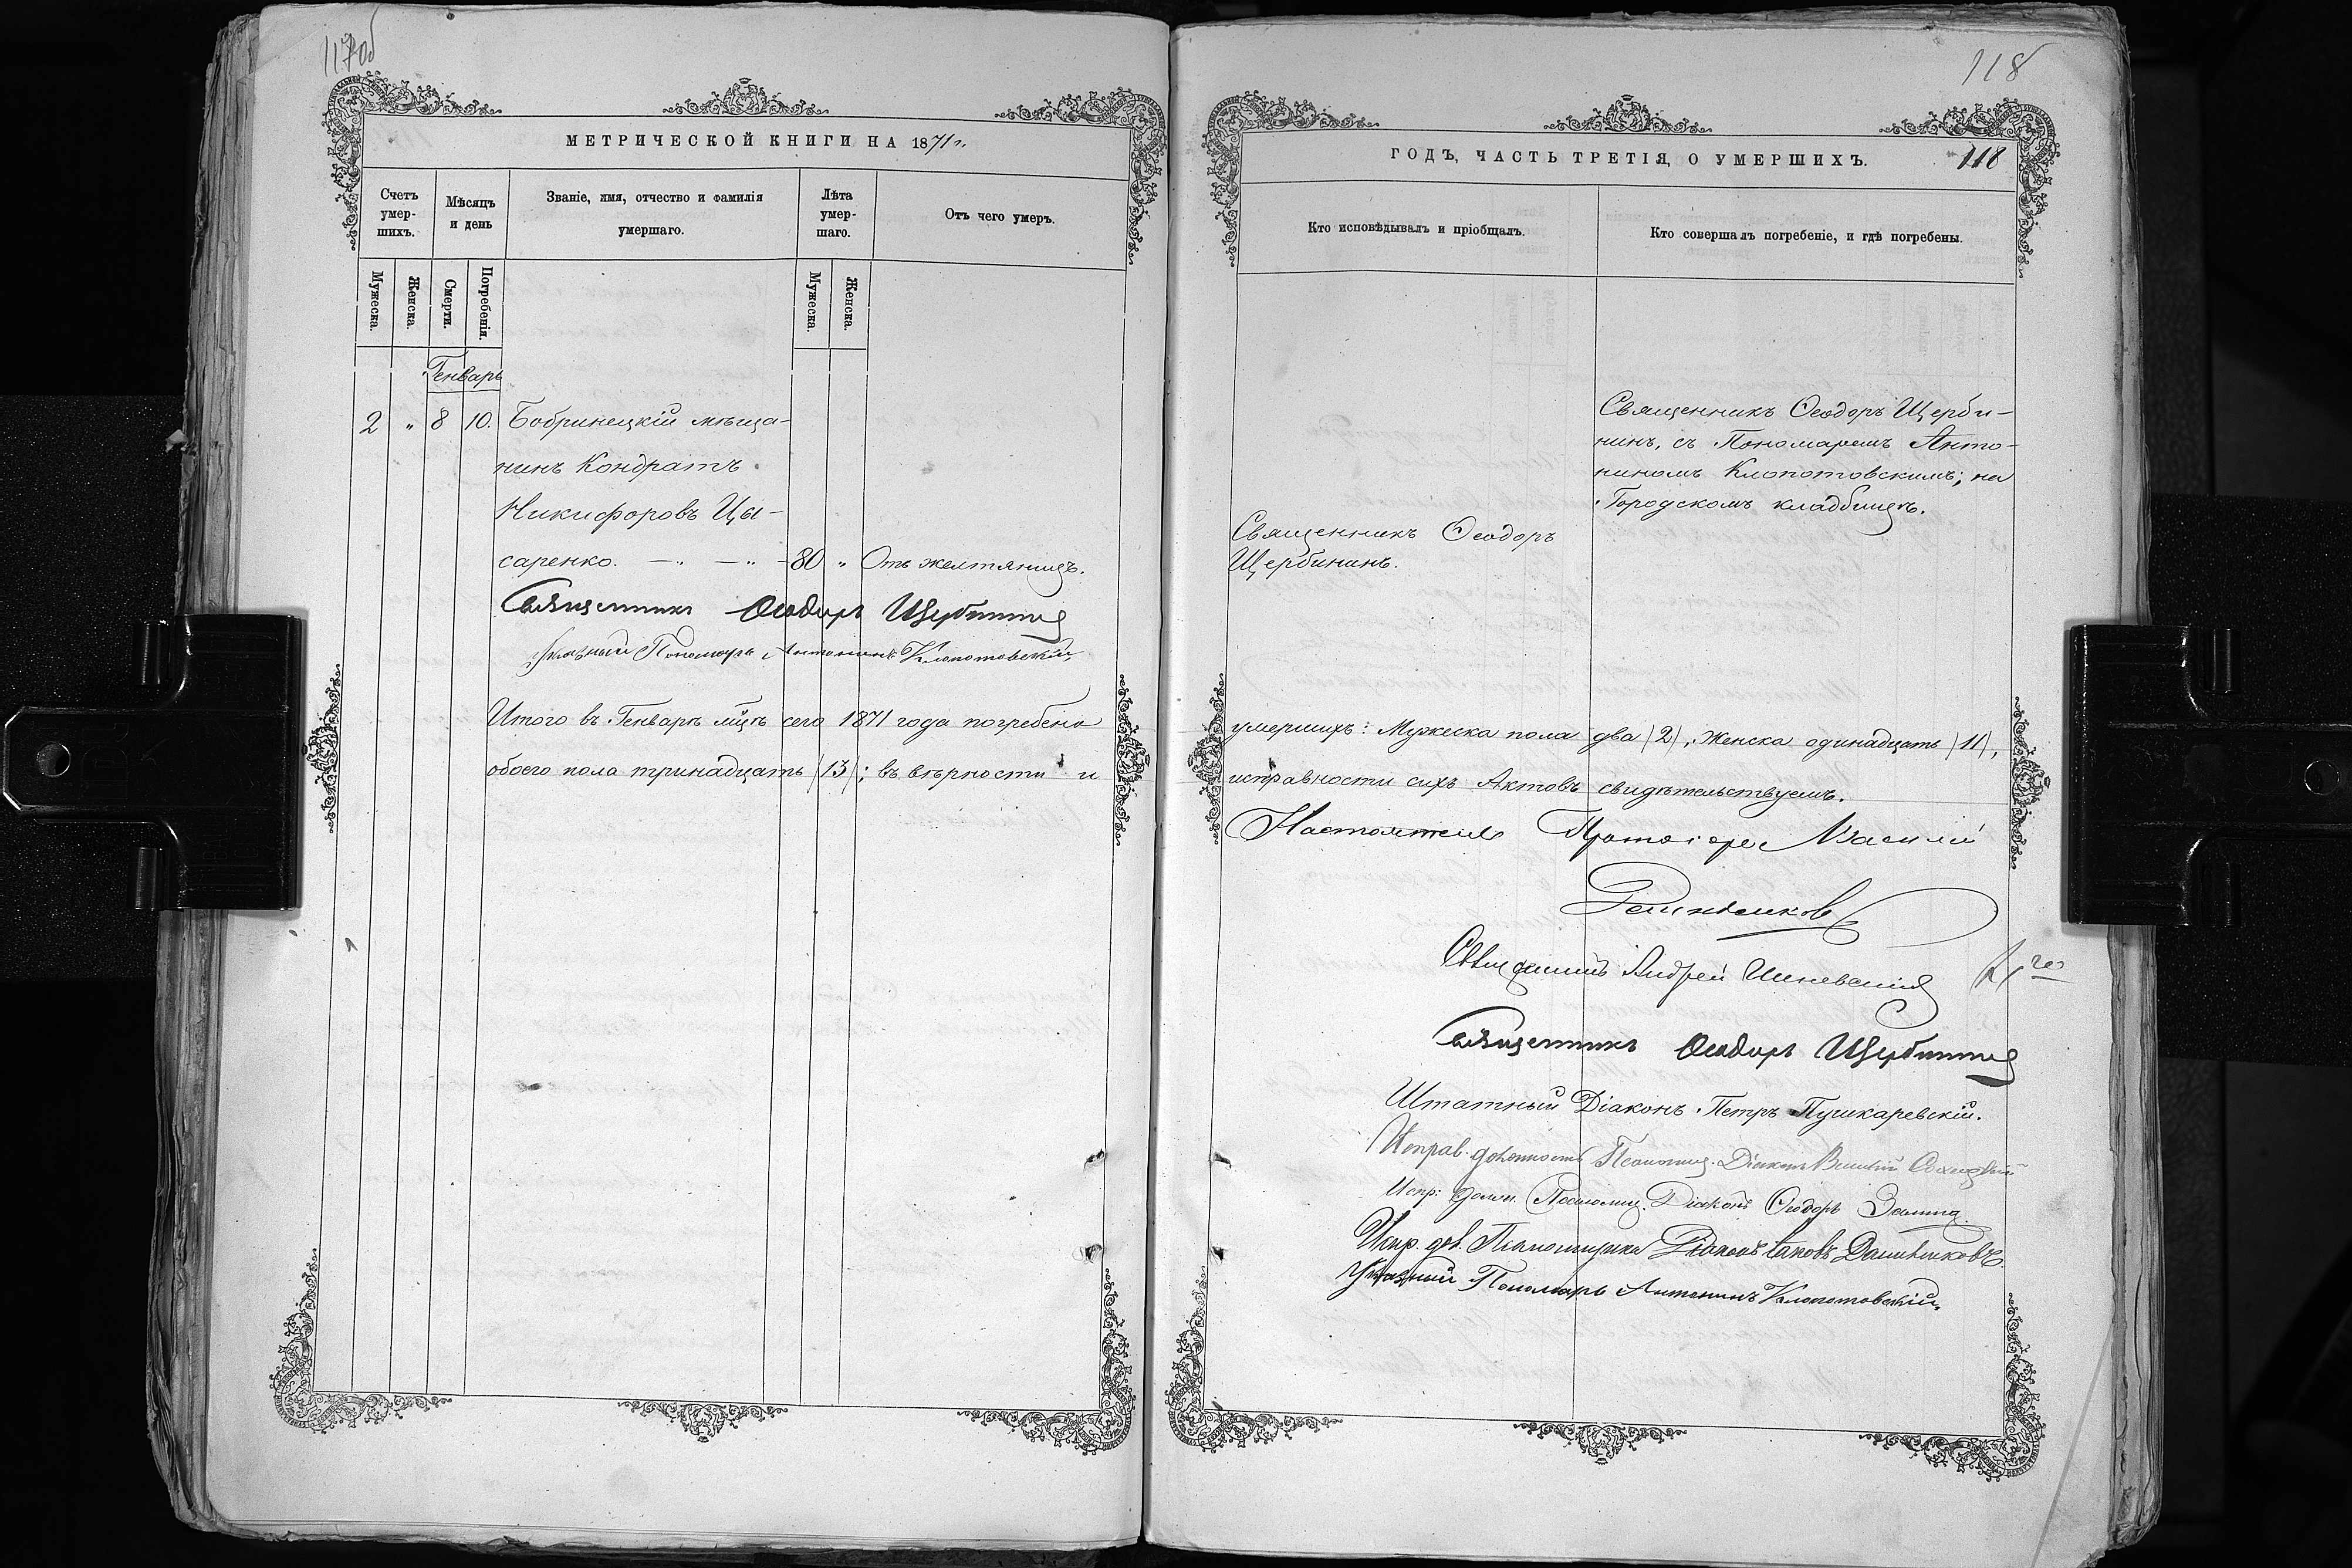 117об
МЕТРИЧЕСКОЙ КНИГИ НА 1871 г.
Счетъ умер-шихъ.
Мѣсяцъ и день
Званіе, имя, отчество и фамилія умершаго.
Лѣта умер-шаго.
Отъ чего умеръ.
Мужеска.
Женска.
Смерти.
Погребенія.
Мужеска.
Женска.
Генварь
2 " 8 10. Бобринецкій мѣща-
нинъ Кондратъ
Никифоровъ Цы-
саренко. — " — " - 80 " Отъ желтяницъ.
Священникъ Ѳеодоръ Щербининъ
Указный Пономарь Антонинъ Клопотовскій
Итого въ Генварѣ мцѣ сего 1871 года погребено
обоего пола тринадцать (13); въ вѣрности и
118
ГОДЪ, ЧАСТЬ ТРЕТІЯ, О УМЕРШИХЪ.
118
Кто исповѣдывалъ и пріобщалъ.
Кто совершалъ погребеніе, и гдѣ погребены.
Священникъ Ѳеодоръ
Щербининъ.
Священникъ Ѳеодоръ Щерби-
нинъ, съ Пономаремъ Анто-
ниномъ Клопотовскимъ; на
Городскомъ кладбищѣ.
умершихъ: Мужеска пола два (2), Женска одинадцать (11),
исправности сихъ Актовъ свидѣтельствуемъ.
Настоятель Протоіерей Василій
Священникъ Андрей
Священникъ Ѳеодоръ Щербининъ
Штатный Діаконъ Петръ Пушкаревскій.
Исправ. должность Псаломщ. Діаконъ Василій
Испр: должн. Псаломщ. Діаконъ Ѳеодоръ
Испр. дол. Псаломщика Діаконъ Іаковъ
Указный Пономарь Антонинъ Клопотовскій